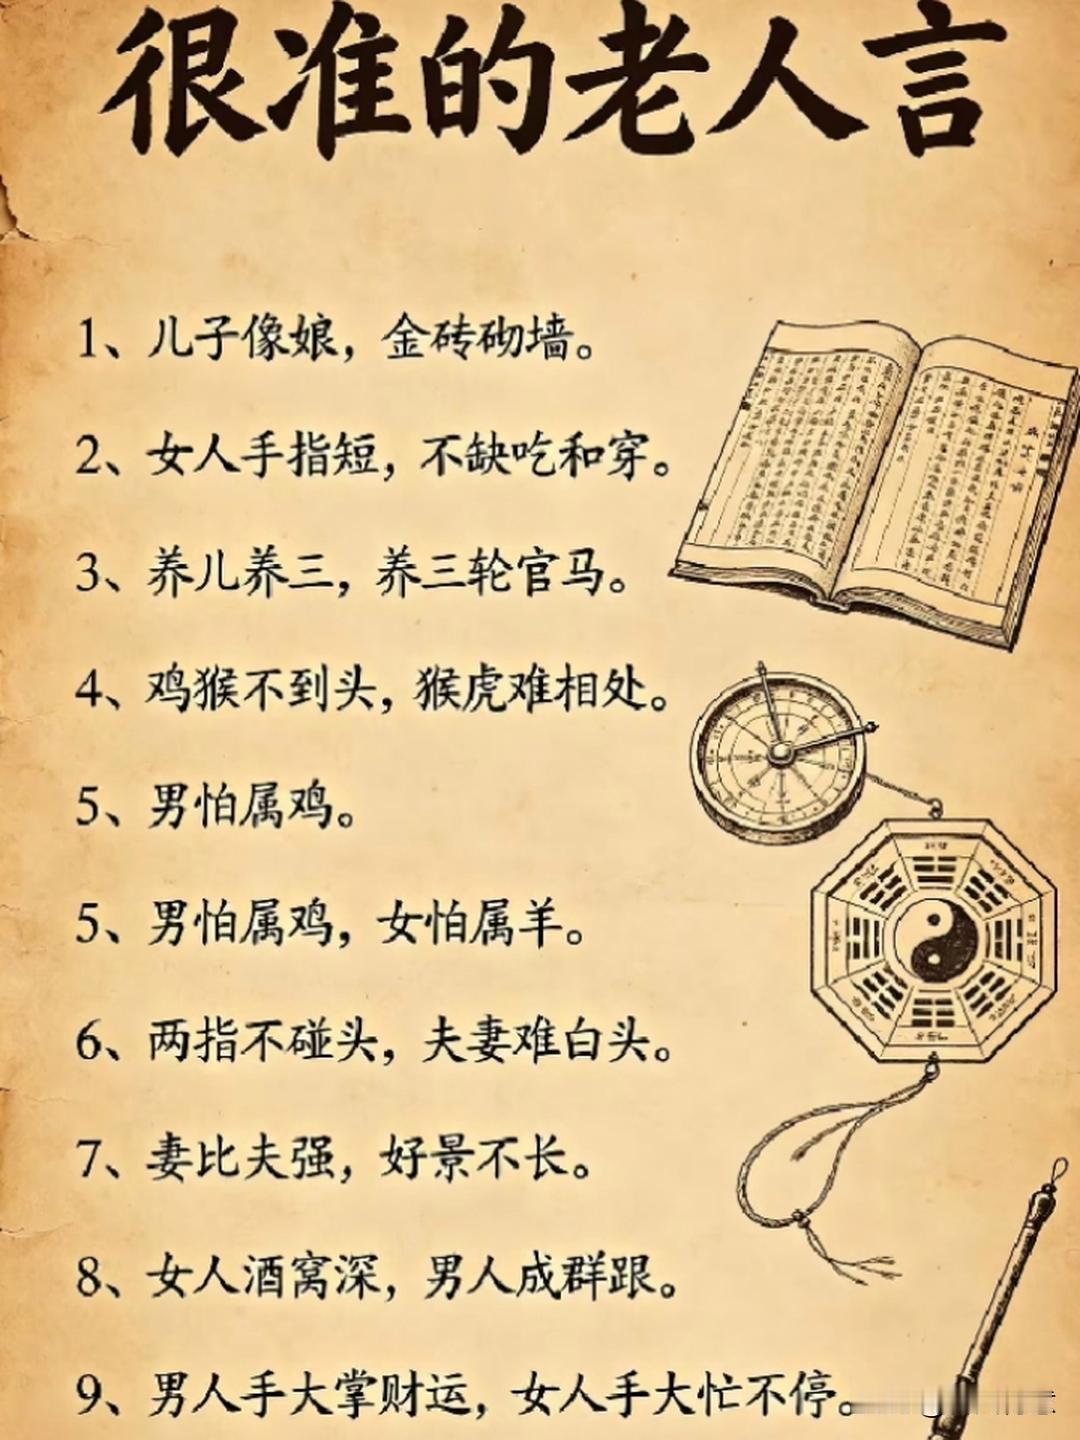 很准的老人言
1、儿子像娘，金砖砌墙。
2、女人手指短，不缺吃和穿。
3、养儿养三，养三轮官马。
4、鸡猴不到头，猴虎难相处。
5、男怕属鸡。
5、男怕属鸡，女怕属羊。
6、两指不碰头，夫妻难白头。
7、妻比夫强，好景不长。
8、女人酒窝深，男人成群跟。
9、男人手大掌财运，女人手大忙不停。